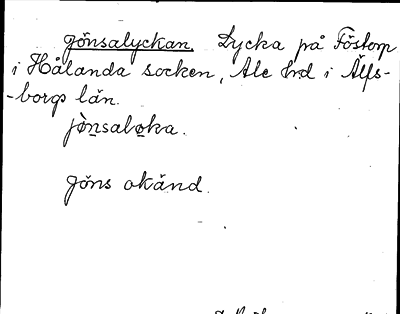 Jönsalyckan. Lycka på Föstorp
i Hålanda socken, Ale hrd i Älfs-
-borgs län.
jònsaloka.
Jöns okänd.